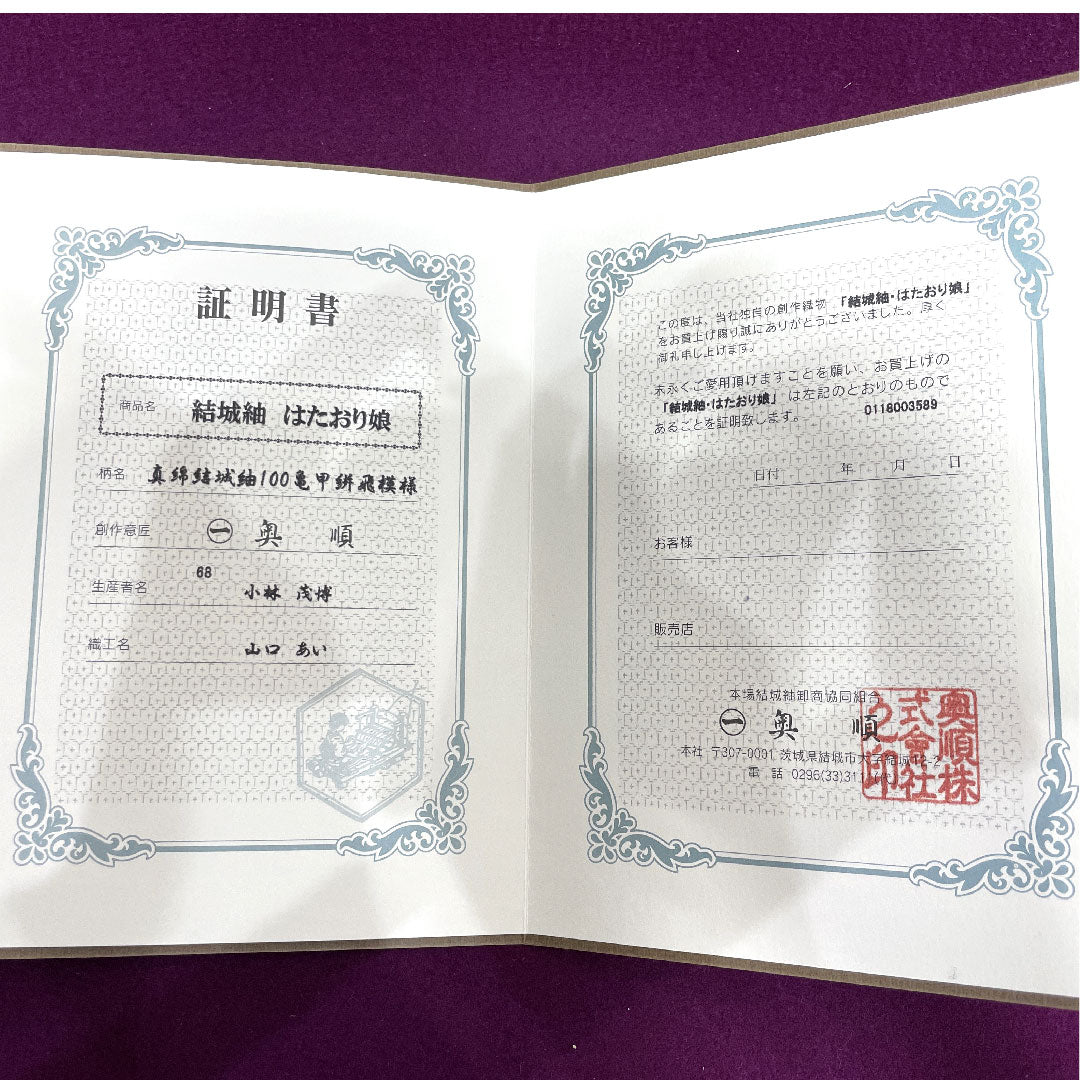 証明書
商品名 結城紬 はたおり娘
柄名 真綿結城紬100亀甲絣飛模様
創作意匠 ㊀ 奥 順
68
生産者名 小林 茂博
織工名 山口 あい
この度は、当社独自の創作織物 「結城紬・はたおり娘」
をお買上げ賜り誠にありがとうございました。厚く
御礼申し上げます。
末永くご愛用頂けますことを願い、お買上げの
「結城紬・はたおり娘」 は左記のとおりのもので
あることを証明致します。 0118003589
日付 年 月 日
お客様
販売店
本場結城紬卸商協同組合
㊀ 奥 順
本社 〒307-0001 茨城県結城市大字結城12-2
電 話 0296(33)31
奥順株
式會社
之印